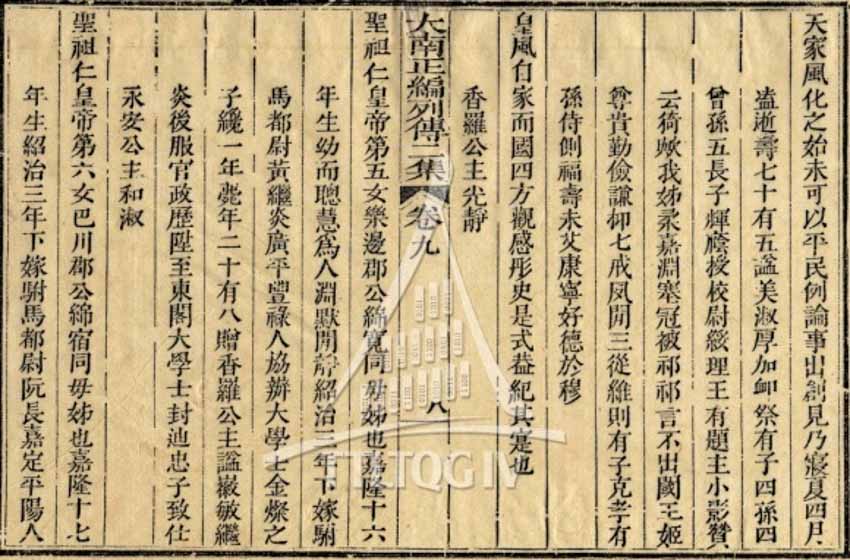 天家風化之始未可以平民例論事出創見乃寢夏四月
逝壽七十有五諡美淑厚加卹祭有子四孫四
曾孫五長子輝授校尉綏理王有題主小影贊
云猗歟我姊柔嘉淵塞冠被祁祁言不出閫王姬
尊貴勤儉謙仰七戒夙閒三從維則有子克孝有
孫侍側福壽未艾康寧好德於穆
皇風自家而國四方觀感彤史是式葢紀其寔也
香羅公主光靜
大南正編列傳二集 卷九 八
聖祖仁皇帝第五女樂邊郡公綿寬同毋姊也嘉隆十六
年生幼而聰慧爲人淵默閒靜紹治三年下嫁駙
馬都尉黃繼炎廣平豐祿人協辦大學士金燦之
子纔一年薨年二十有八贈香羅公主諡徽敏繼
炎後服官政歷陞至東閣大學士封迪忠子致仕
永安公主和淑
聖祖仁皇帝第六女巴川郡公綿宿同毋姊也嘉隆十七
年生紹治三年下嫁駙馬都尉阮長嘉定平陽人
TTLTQG IV